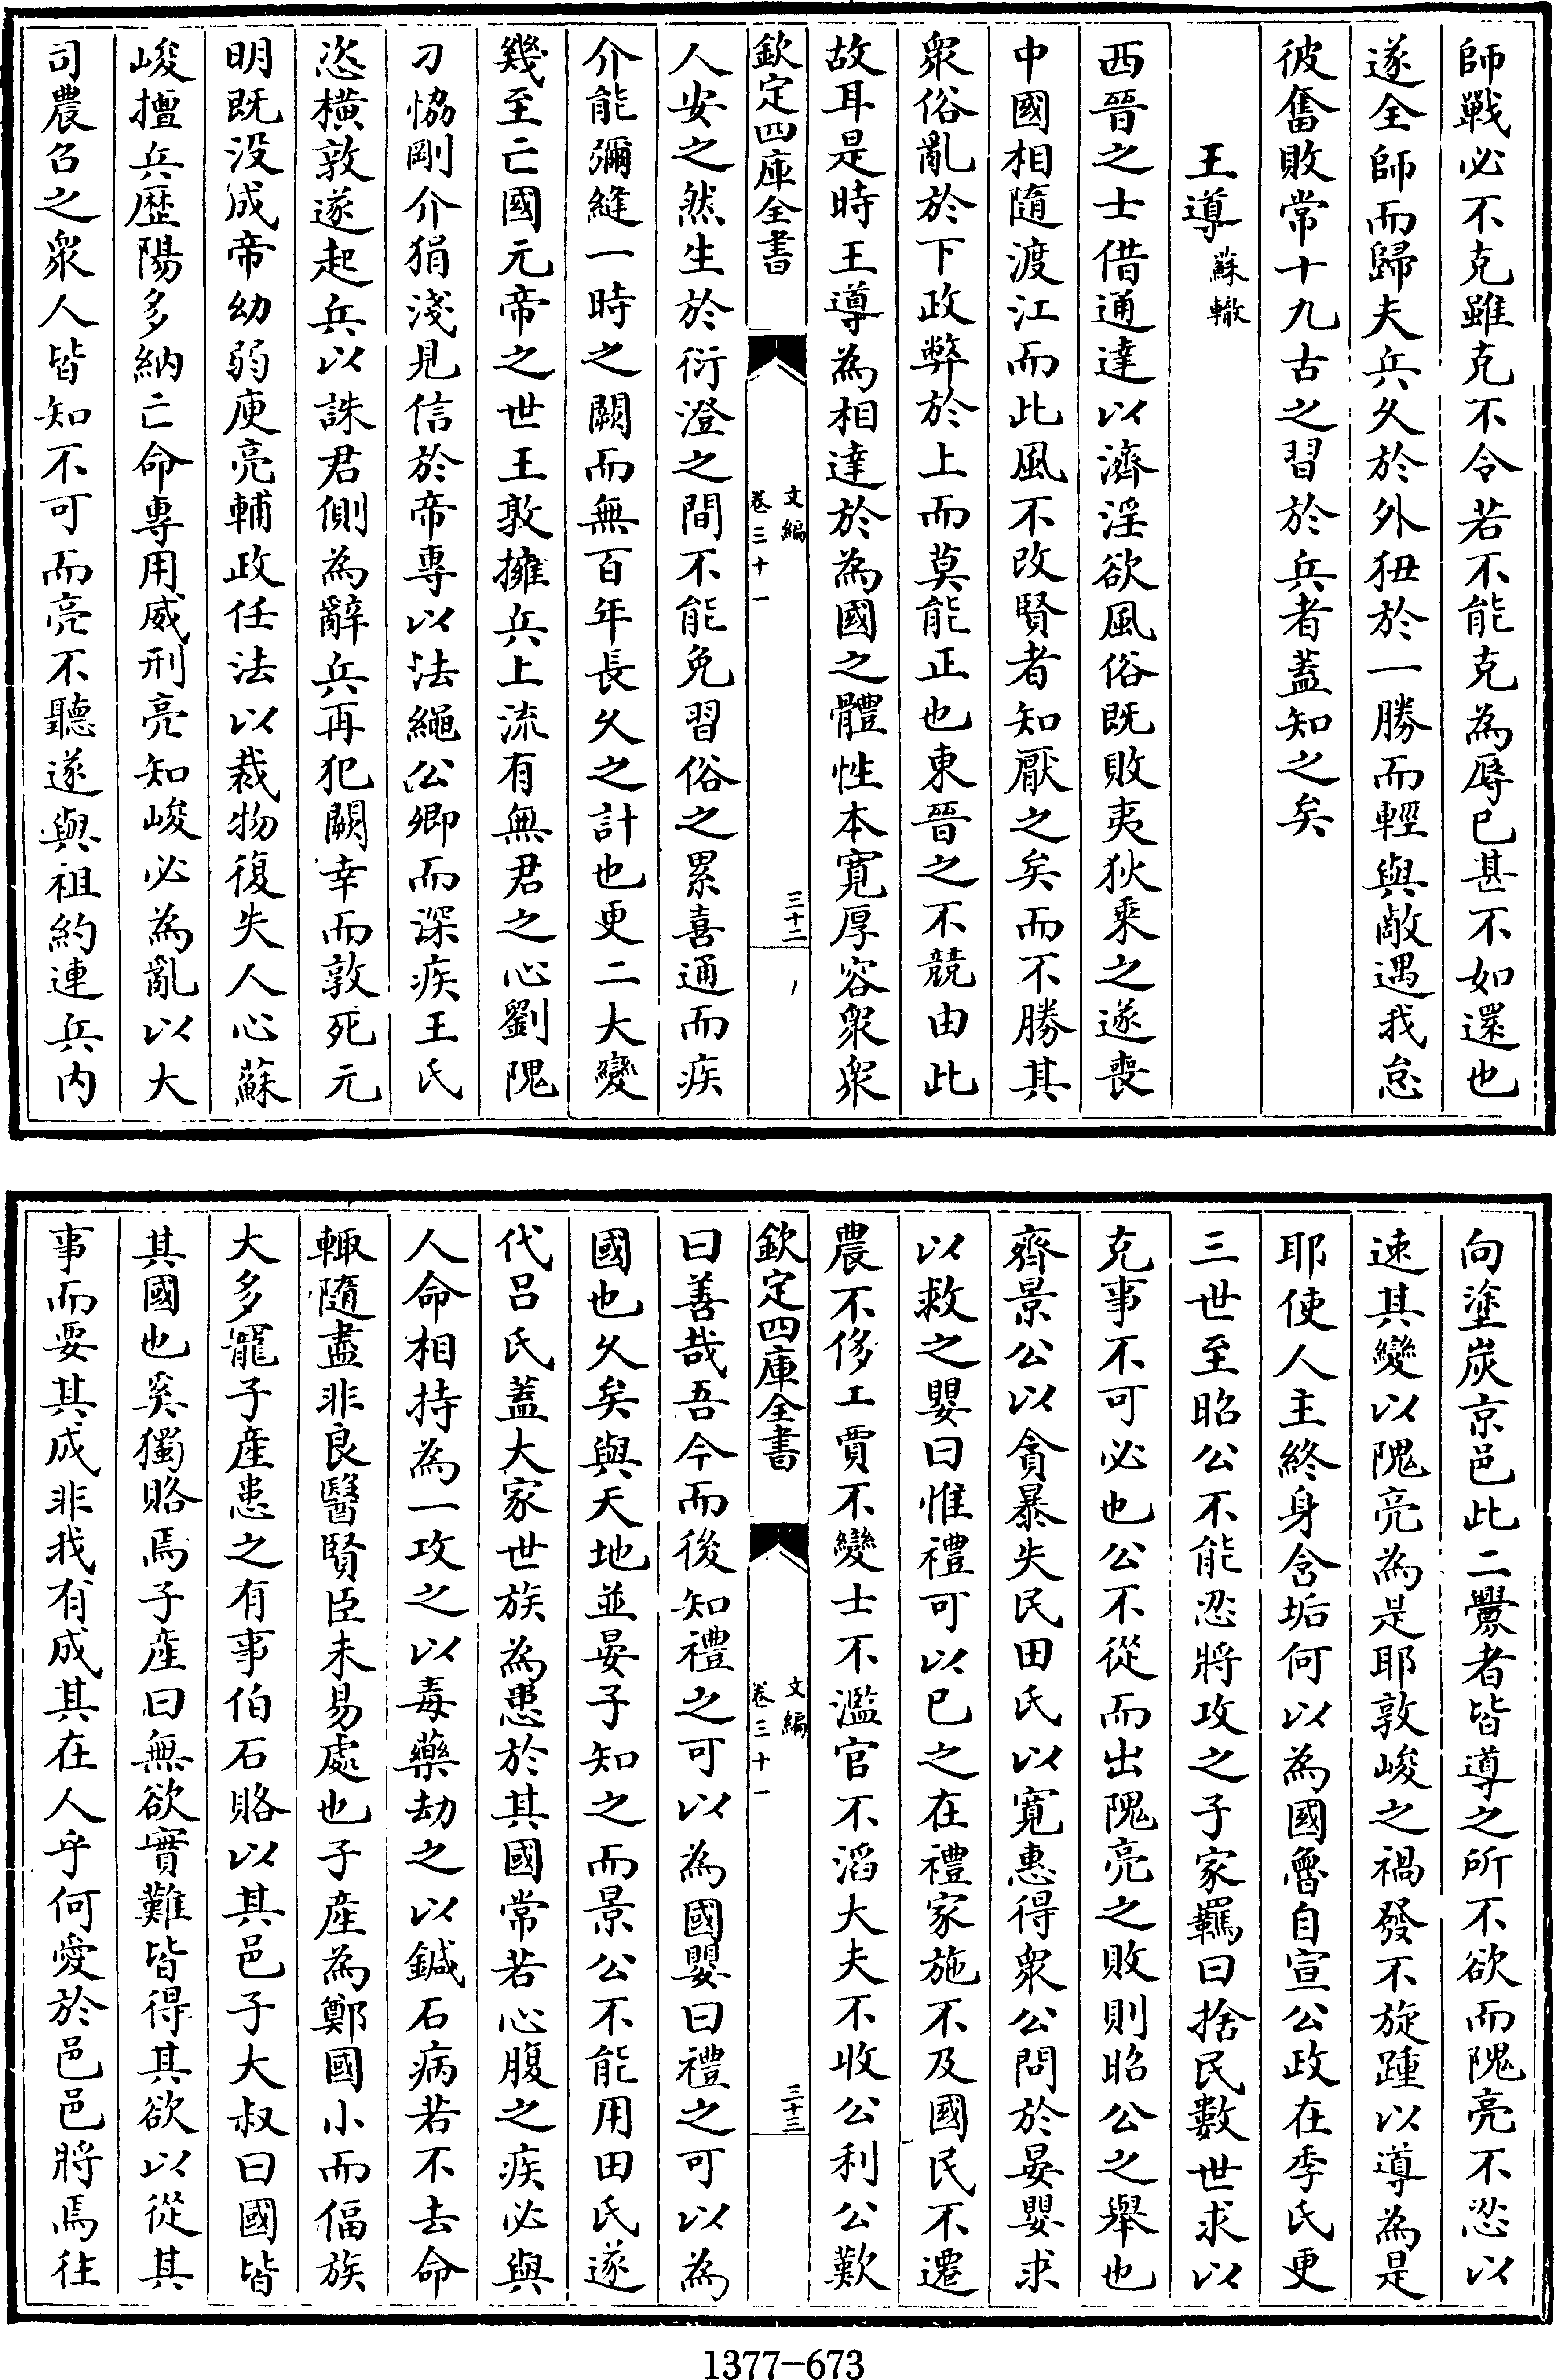 師戰必不克雖克不令若不能克為辱已甚不如還也
遂全師而歸夫兵久於外狃於一勝而輕與敵遇我怠
彼奮敗常十九古之習於兵者蓋知之矣
王導 蘇轍
西晉之士借通達以濟淫欲風俗既敗夷狄乘之遂喪
中國相隨渡江而此風不改賢者知厭之矣而不勝其
眾俗亂於下政弊於上而莫能正也東晉之不競由此
故耳是時王導為相達於為國之體性本寬厚容眾眾
欽定四庫全書 文編 卷三十一 三十二
人安之然生於衍澄之間不能免習俗之累喜通而疾
介能彌縫一時之闕而無百年長久之計也更二大變
幾至亡國元帝之世王敦擁兵上流有無君之心劉隗
刁協剛介狷淺見信於帝專以法繩公卿而深疾王氏
恣橫敦遂起兵以誅君側為辭兵再犯闕幸而敦死元
明既没成帝幼弱庾亮輔政任法以裁物復失人心蘇
峻擅兵歷陽多納亡命專用威刑亮知峻必為亂以大
司農召之衆人皆知不可而亮不聽遂與祖約連兵内
向塗炭京邑此二釁者皆導之所不欲而隗亮不忍以
速其變以隗亮為是耶敦峻之禍發不旋踵以導為是
耶使人主終身含垢何以為國魯自宣公政在季氏更
三世至昭公不能忍將攻之子家羈曰捨民數世求以
克事不可必也公不從而出隗亮之敗則昭公之舉也
齊景公以貪暴失民田氏以寬惠得衆公問於晏嬰求
以救之嬰曰惟禮可以已之在禮家施不及國民不遷
農不侈工賈不變士不濫官不滔大夫不收公利公歎
欽定四庫全書 文編 卷三十一 三十三
曰善哉吾今而後知禮之可以為國嬰曰禮之可以為
國也久矣與天地並晏子知之而景公不能用田氏遂
代呂氏蓋大家世族為患於其國常若心腹之疾必與
人命相持為一攻之以毒藥劫之以鍼石病若不去命
輙隨盡非良醫賢臣未易處也子產為鄭國小而偪族
大多寵子產患之有事伯石賂以其邑子大叔曰國皆
其國也奚獨賂焉子產曰無欲實難皆得其欲以從其
事而要其成非我有成其在人乎何愛於邑邑將焉往
1377-673